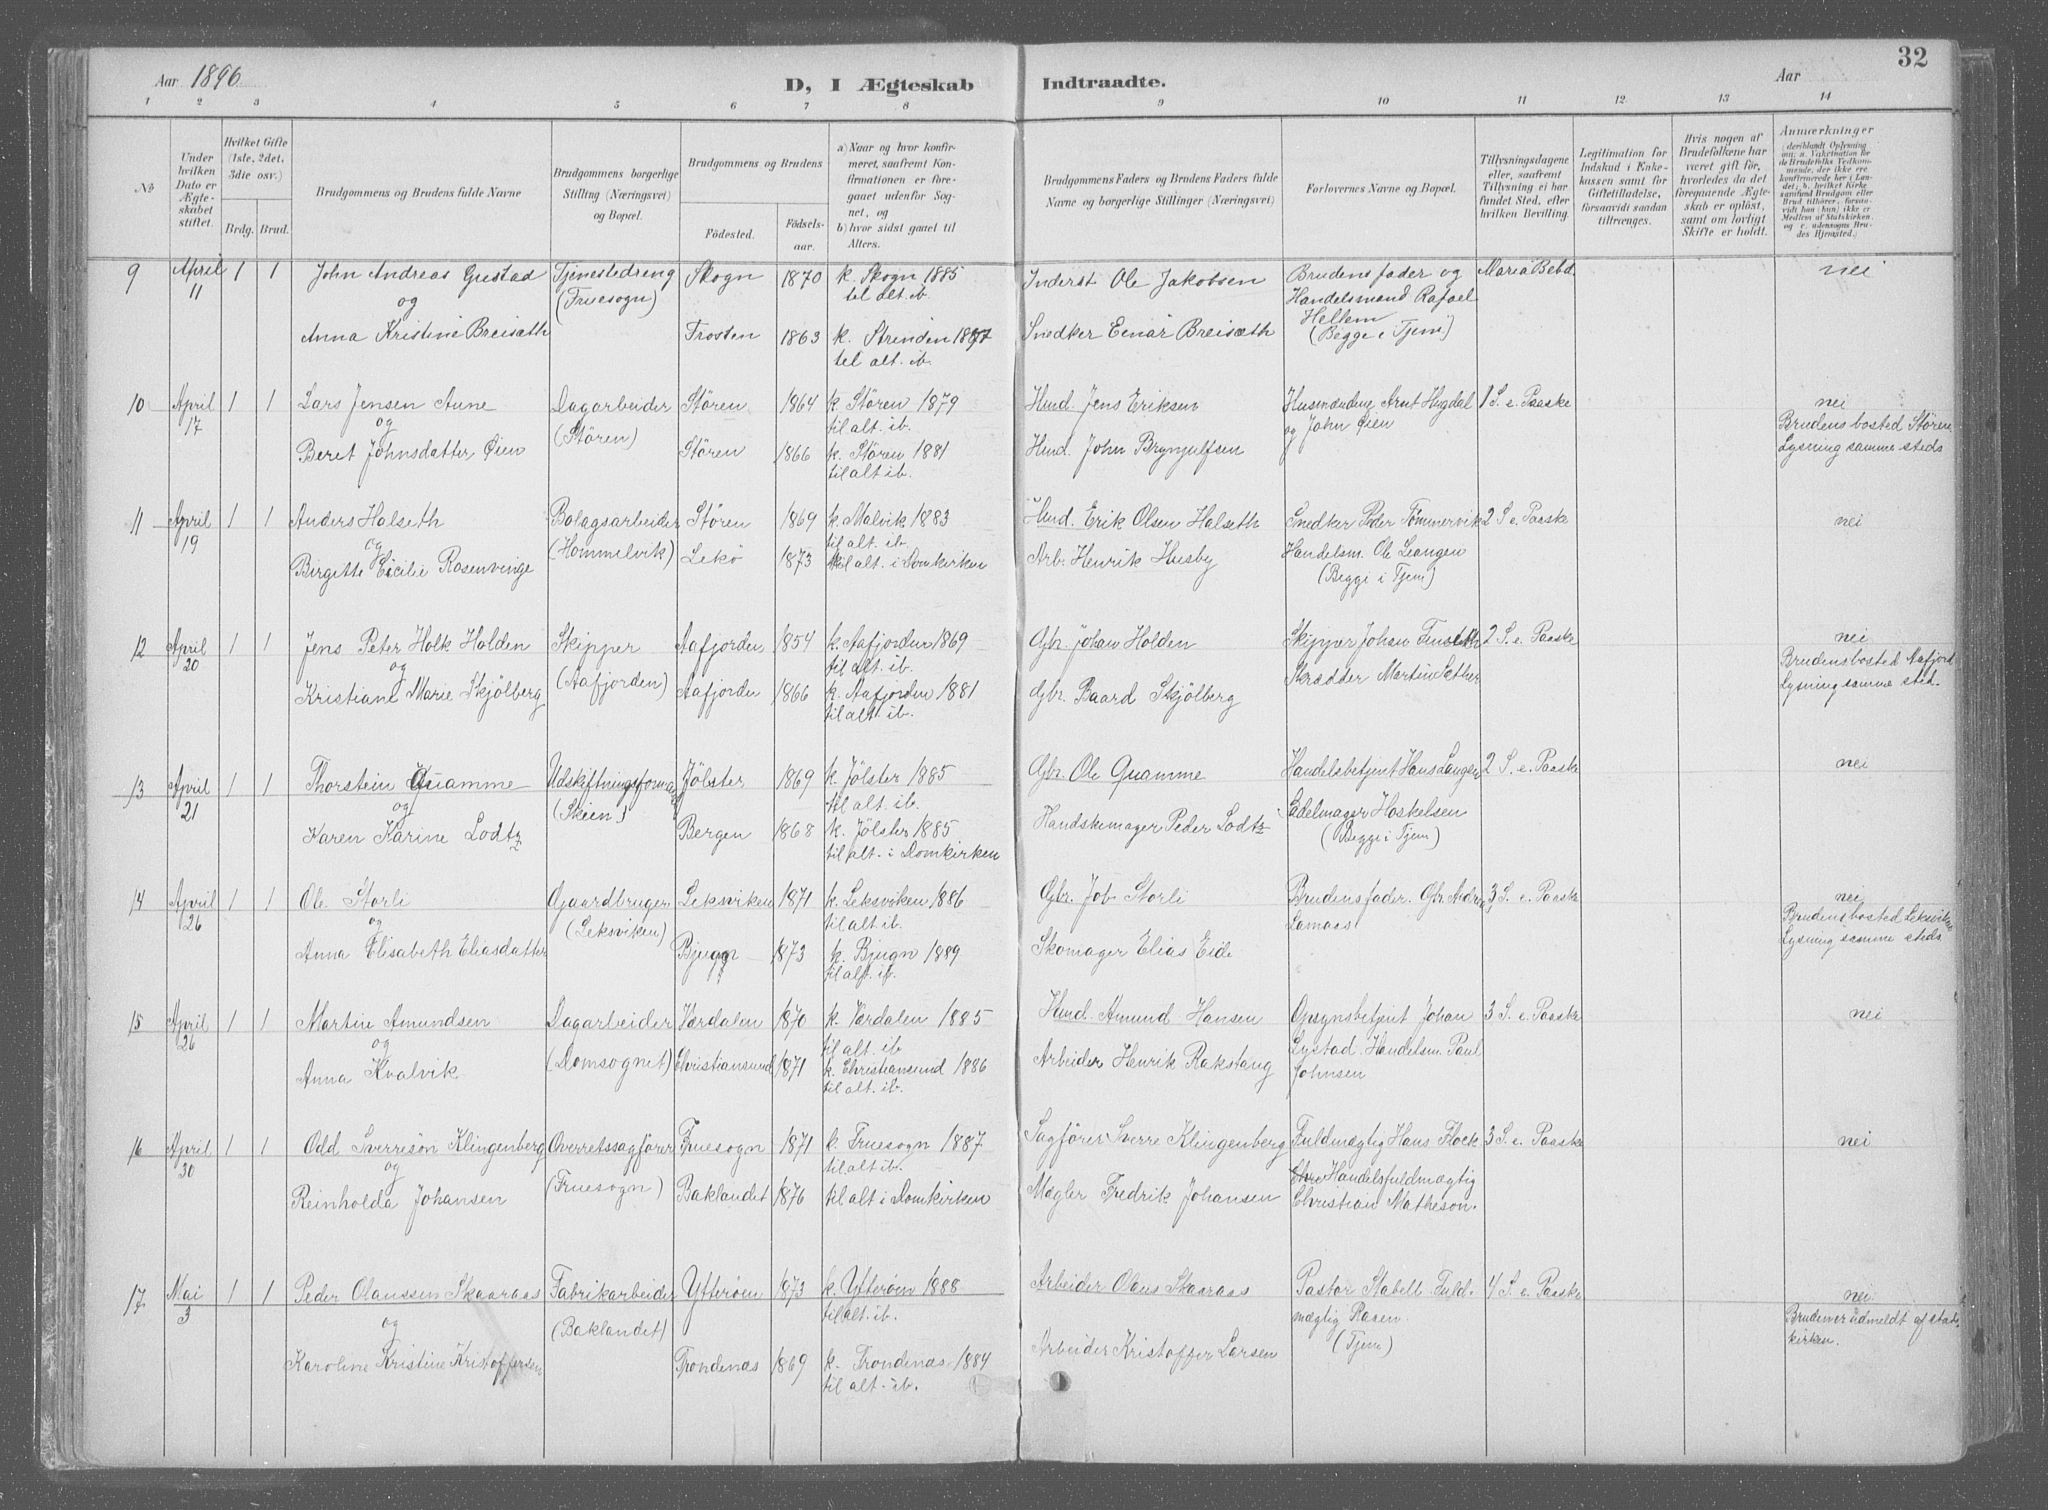 Aar 1896 D, I Ægteskab Indtraadte. Aar 32
1 2 3 4 5 6 7 8 9 10 11 12 13 14
No
Under hvilken Dato er Ægteskabet stiftet.
Hvilket Gifte (1ste, 2det, 3die osv.)
Brdg. Brud.
Brudgommens og Brudens fulde Navne
Brudgommens borgerlige Stilling (Næringsvei) og Bopæl.
Brudgommens og Brudens
Fødested. Fødselsaar.
a) Naar og hvor konfirmeret, saafremt Konfirmationen er foregaaet udenfor Sognet, og
b) hvor sidst gaaet til Alters.
Brudgommens Faders og Brudens Faders fulde Navne og borgerlige Stillinger (Næringsvei)
Forlovernes Navne og Bopæl.
Tillysningsdagene eller, saafremt Tillysning ei har fundet Sted, efter hvilken Bevilling.
Legitimation for Indskud i Enkekassen samt for Giftetilladelse, forsaavidt saadan tiltrænges.
Hvis nogen af Brudefolkene har været gift før, hvorledes da det foregaaende Ægteskab er opløst, samt om lovligt Skifte er holdt.
Anmærkninger
9 April 11 1 1 John Andreas Gustad Tjenestedreng Skogn 1870 k. Skogn 1885 Inderst Ole Jakobsen Brudens fader og Maria Bebd. nei
og (Fruesogn) til alt. ib. Handelsmand Rafael
Anna Kristine Breisæth Frosten 1863 k. Strinden 1887 Snedker Einar Breisæth Hellem
til alt. ib. (Begge i Tjem)
10 April 17 1 1 Lars Jensen Aune Dagarbeider Stören 1864 k. Stören 1879 Husd. Jens Eriksen Husmændene Arnt Hugdal 1 S. e. Paaske nei
og (Stören) til alt. ib. og John Øien Brudens bosted Stören
Beret Johnsdatter Øien Stören 1866 k. Stören 1881 Husd. John Brynjulfsen Lysning samme steds
til alt ib.
11 April 19 1 1 Anders Halseth Bolagsarbeider Stören 1869 k. Malvik 1883 Husd. Erik Olsen Halseth Snedker Peder Tømmervik 2 S. e. Paaske nei
og (Hommelvik) til alt. ib. Handelsm. Ole Leangen
Birgitte Cicilie Rosenvinge Lekö 1873 til alt. i Domkirken Arb. Henrik Husby (Beggi i Tjem)
12 April 20 1 1 Jens Peter Holk Holden Skipper Aafjorden 1854 k. Aafjorden 1869 Gbr. Johan Holden Skipper Johan 2 S. e. Paaske nei
og (Aafjorden) til alt. ib. Skrædder Martin Sæther Brudens bosted Aafjord
Kristiane Marie Skjölberg Aafjorden 1866 k. Aafjorden 1881 Gbr. Baard Skjölberg Lysning samme sted.
til alt. ib.
13 April 21 1 1 Thorstein Quamme Udskiftningsformand Jölster 1869 k. Jölster 1885 Gbr. Ole Quamme Handelsbetjent Hans Langen 2 S. e. Paaske nei
og (Skien) til alt. ib. Sadelmager Hoskelsen
Karen Karine Lodtz Bergen 1868 k. Jölster 1885 Handskemager Peder Lodtz (Beggi i Tjem)
til alt. i Domkirken
14 April 26 1 1 Ole Storli Gaardbruger Leksviken 1871 k. Leksviken 1886 Gbr. Job Storli Brudens fader. Gbr. 3 S. e. Paaske nei
og (Leksviken) til alt ib. Brudens bosted Leksviken
Anna Elisabeth Eliasdatter Bjugn 1873 k. Bjugn 1889 Skomager Elias Eide Lysning samme steds
til alt. ib.
15 April 26 1 1 Martin Amundsen Dagarbeider Værdalen 1870 k. Værdalen 1885 Husd. Amund Hansen Opsynsbetjent Johan 3 S. e. Paaske nei
og (Domsognet) til alt. ib Lystad. Handelsm. Paul
Anna Kvalvik Christiansund 1871 k. Christiansund 1886 Arbeider Henrik Rakstang Johnsen
til alt. ib.
16 April 30 1 1 Odd Sverresön Klingenberg Overretssagförer Fruesogn 1871 k. Fruesogn 1887 Sagförer Sverre Klingenberg Fuldmægtig Hans Flock 3 S. e. Paaske nei
og (Fruesogn) til alt ib. Handelsfuldmægtig
Reinholda Johansen Baklandet 1876 til alt i Domkirken Mægler Fredrik Johansen Christian Matheson.
17 Mai 3 1 1 Peder Olaussen Skaaraas Fabrikarbeider Ytterøen 1873 k. Ytterøen 1888 Arbeider Olaus Skaaraas Pastor Stabell. Fuld- 4 S. e. Paaske nei
og (Baklandet) til alt. ib. mægtig Rasen Bruden er udmeldt af stats
Karoline Kristine Kristoffersen Trondenæs 1869 k. Trondenæs 1884 Arbeider Kristoffer Larsen (Tjem) kirken.
til alt. ib.